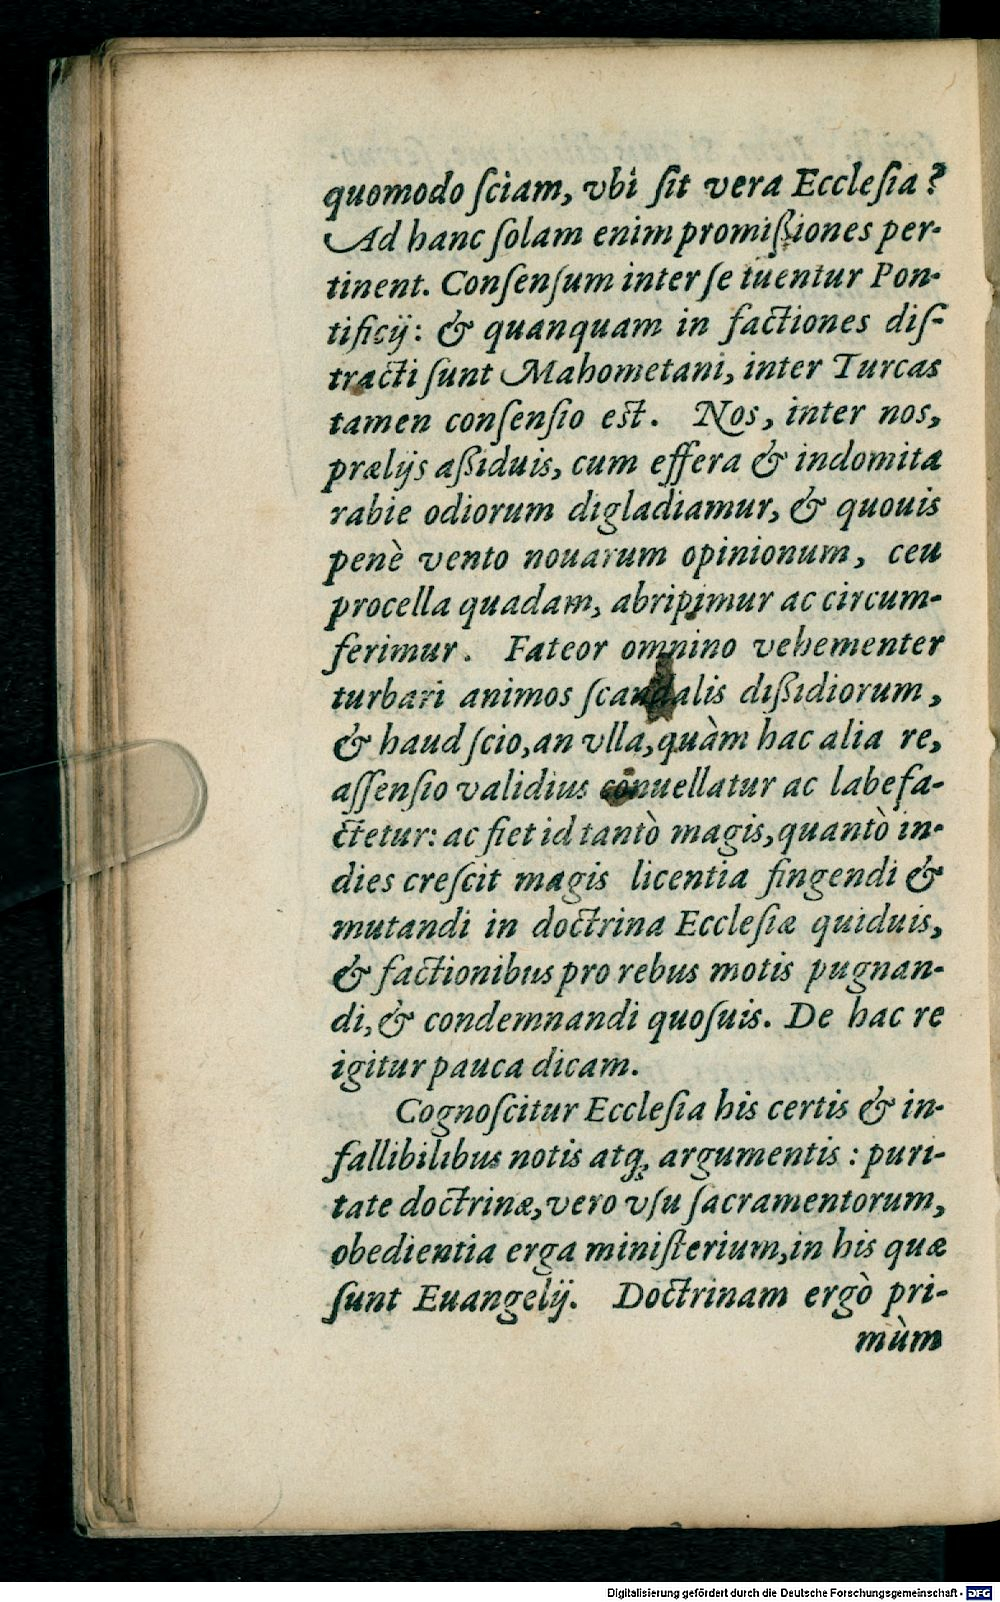 quomodo ſciam, vbi ſit vera Eccleſia?
Ad hanc ſolam enim promißiones per-
tinent. Conſenſum inter ſe tuentur Pon-
tificij: & quanquam in factiones diſ-
tracti ſunt Mahometani, inter Turcas
tamen conſenſio est. Nos, inter nos,
prælijs aßiduis, cum effera & indomita
rabie odiorum digladiamur, & quouis
penè vento nouarum opinionum, ceu
procella quadam, abripimur ac circum-
ferimur. Fateor omnino vehementer
turbari animos ſcandalis dißidiorum,
& haud ſcio, an vlla, quàm hac alia re,
aſſenſio validius cōnuellatur ac labefa-
ctetur: ac fiet id tantò magis, quantò in-
dies creſcit magis licentia fingendi &
mutandi in doctrina Eccleſiæ quiduis,
& factionibus pro rebus motis pugnan-
di, & condemnandi quoſuis. De hac re
igitur pauca dicam.
Cognoſcitur Eccleſia his certis & in-
fallibilibus notis atq; argumentis: puri-
tate doctrinæ, vero vſu ſacramentorum,
obedientia erga miniſterium, in his quæ
ſunt Euangelij. Doctrinam ergò pri-
mùm
Digitalisierung gefördert durch die Deutsche Forschungsgemeinschaft - DFG